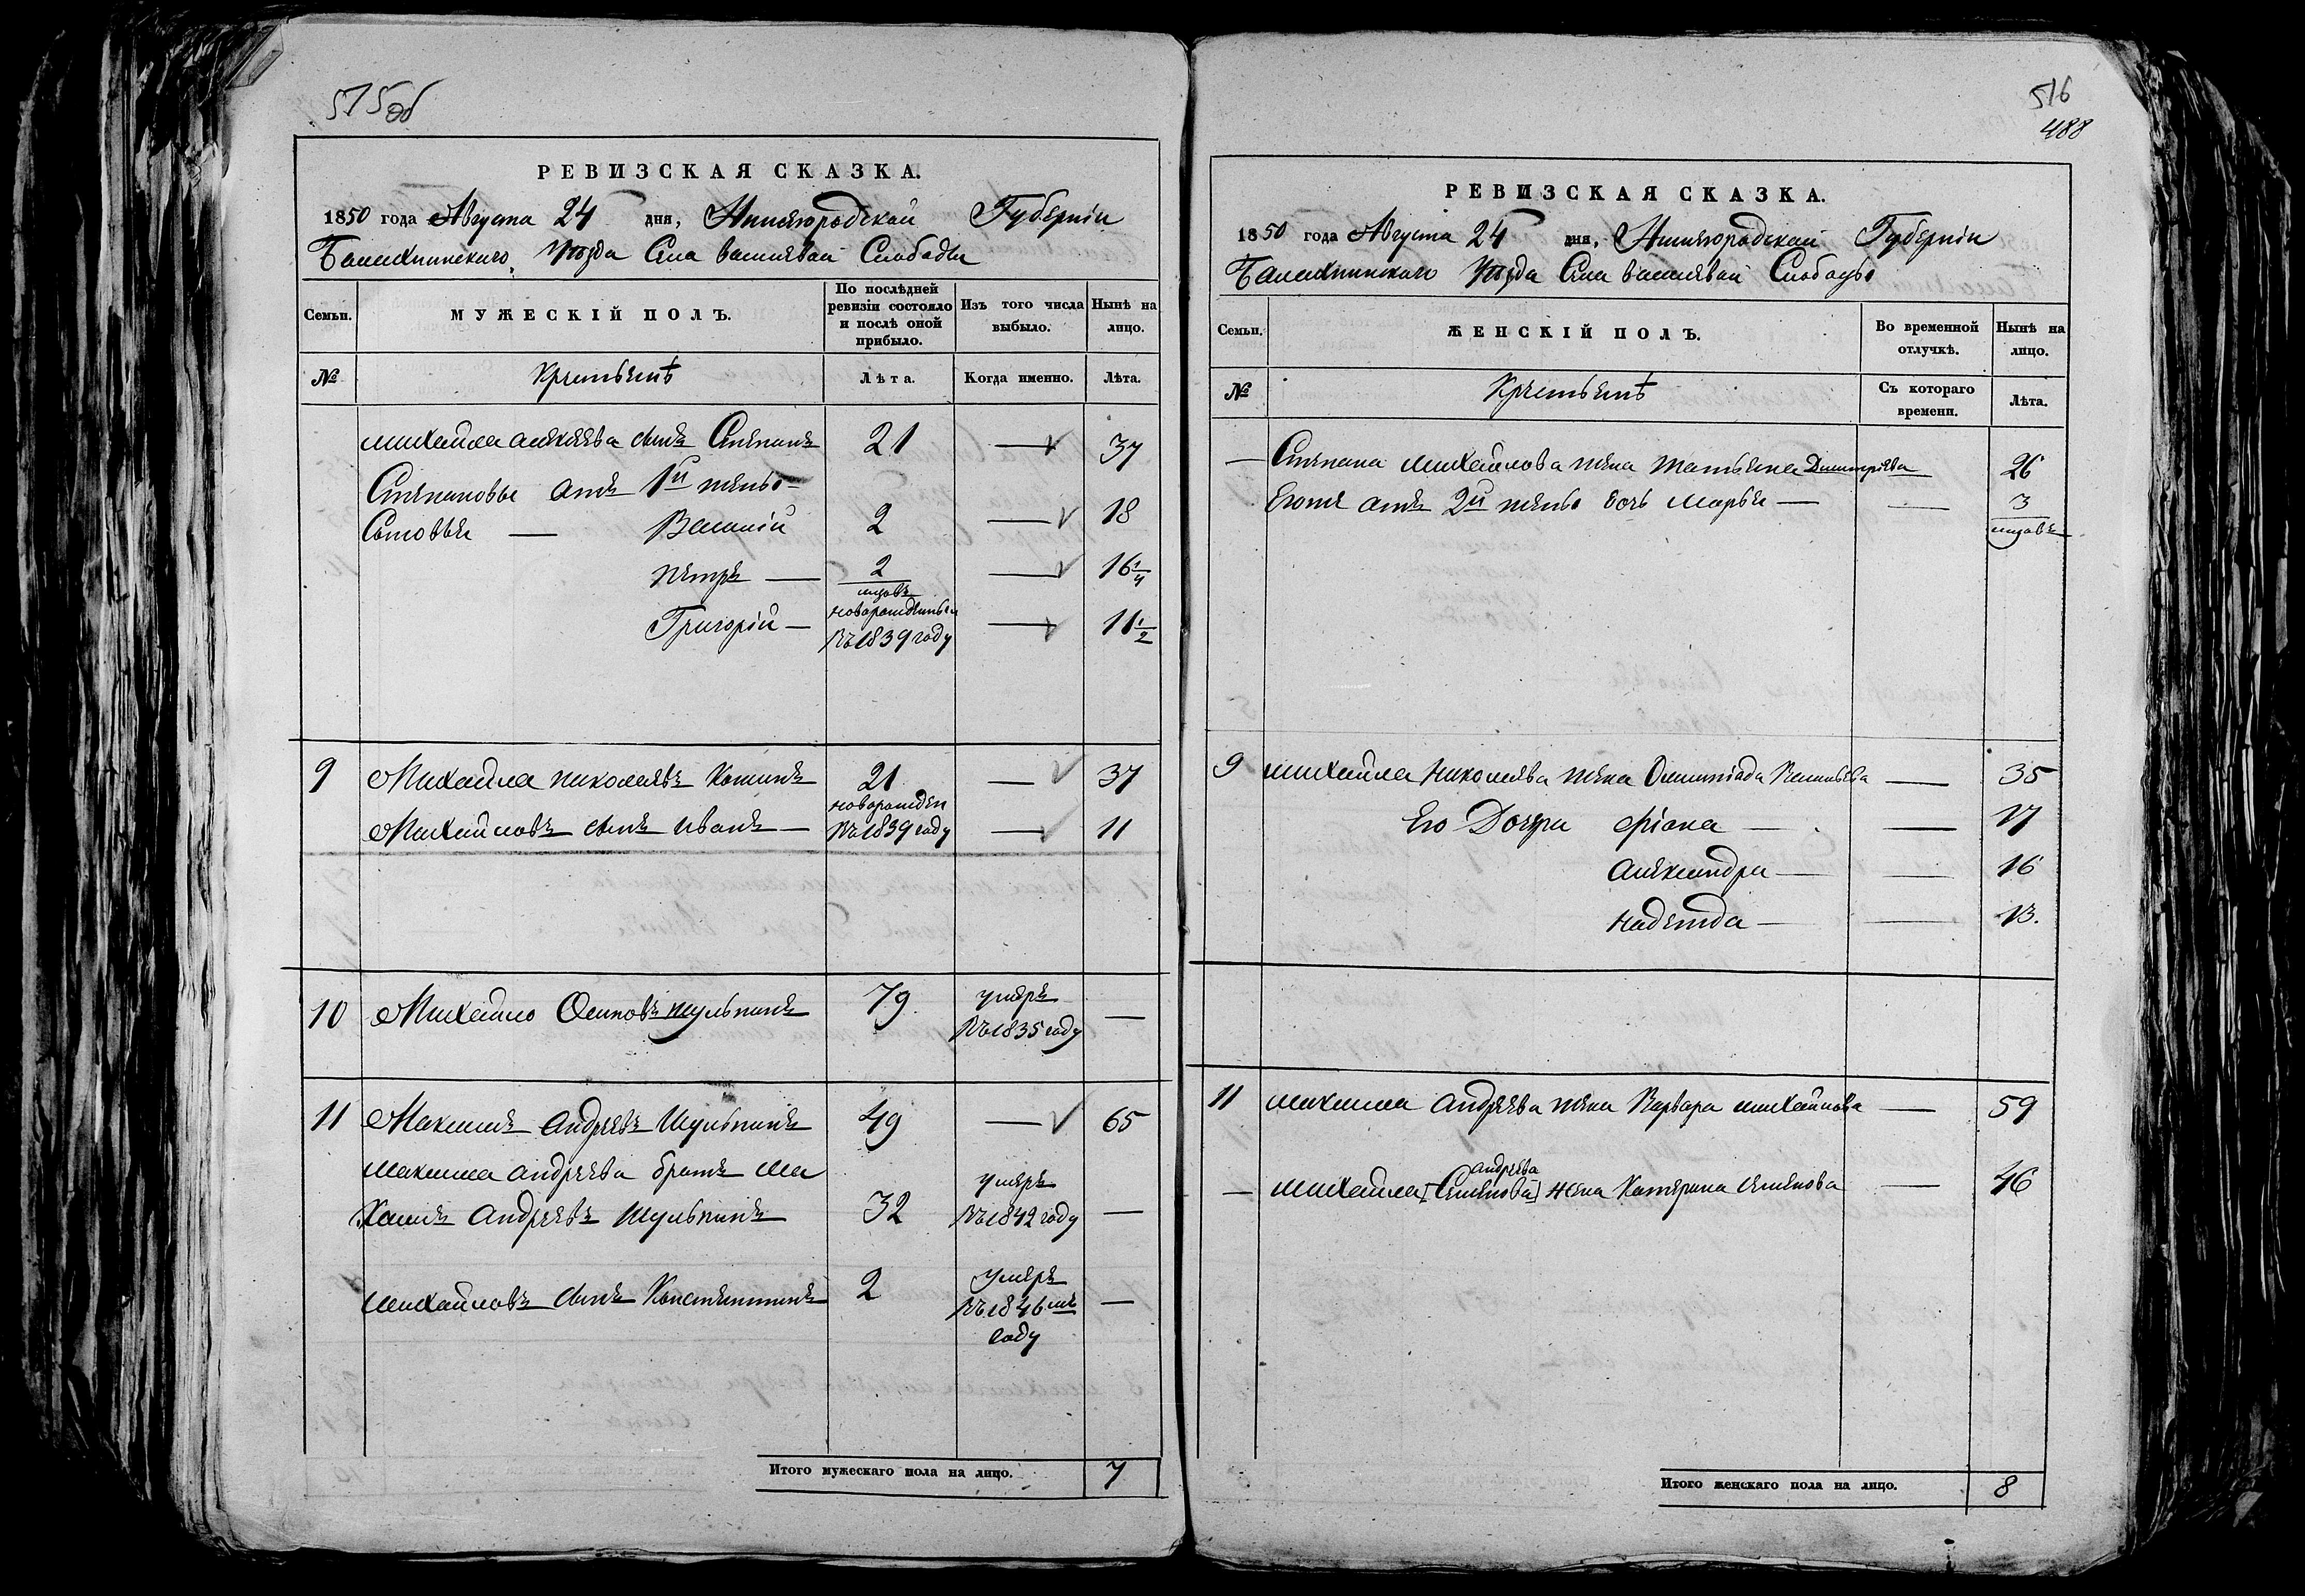 515об
РЕВИЗСКАЯ СКАЗКА.
1850 года Августа 24 дня, Нижегородской Губерніи
Балахнинскаго Уѣзда Села Василевой Слободы
Семьи. МУЖЕСКІЙ ПОЛЪ. По послѣдней ревизіи состояло и послѣ оной прибыло. Изъ того числа выбыло. Нынѣ на лицо.
№ Крестьянѣ Лѣта. Когда именно. Лѣта.
Михайла Алексѣева сынъ Степанъ 21 — 37
Степановы отъ 1й жены
Сыновья — Василій 2 — 18
Петръ — 2 — 16 1/4
Григорій — новорожденный въ 1839 году — 11 1/2
9 Михайла Николаевъ 21 — 37
Михайловъ сынъ Иванъ — новорожден въ 1839 году — 11
10 Михайло Осиповъ Шульпинъ 79 умеръ въ 1835 году —
11 Максимъ Андреевъ Шульпинъ 49 — 65
Максима Андреева братъ Ми
хаилъ Андреевъ Шульпинъ 32 умеръ въ 1842 году —
Михайловъ сынъ Константинъ 2 умеръ въ 1846мъ году —
Итого мужескаго пола на лицо. 7
516
488
РЕВИЗСКАЯ СКАЗКА.
1850 года Августа 24 дня, Нижегородской Губерніи
Балахнинскаго Уѣзда Села Василевой Слободы
Семьи. ЖЕНСКІЙ ПОЛЪ. Во временной отлучкѣ. Нынѣ на лицо.
№ Крестьянѣ Съ котораго времени. Лѣта.
— Степана Михайлова жена Татьяна Дмитріева 26
Егоже отъ 2й жены дочь Марья — — 3
9 Михайла Николаева жена Олимпіада Васильева — 35
Его Дочери — — 17
Александра — — 16
Надежда — — 13.
11 Максима Андреева жена Варвара Михайлова — 59
Андреева
— Михайла [Семенова] жена Катерина Семенова — 46
Итого женскаго пола на лицо. 8